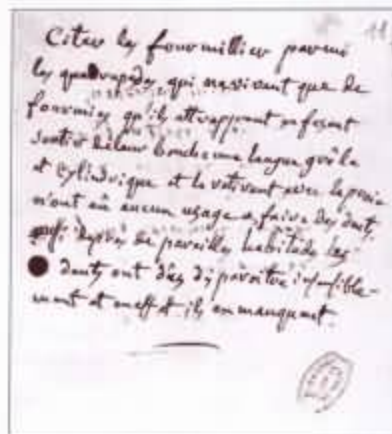 11
Citer les fourmillier parmi
les quadrupedes qui ne vivant que de
fourmies qu'ils attrappent en fesant
sortir de leur bouche une langue grêle
et cylindrique et la retirant avec la proie
n'ont eu aucun usage a faire des dents,
aussi d'apres de pareilles habitudes les
dents ont dûes disparoitre insensible-
ment et en effet ils en manquent.